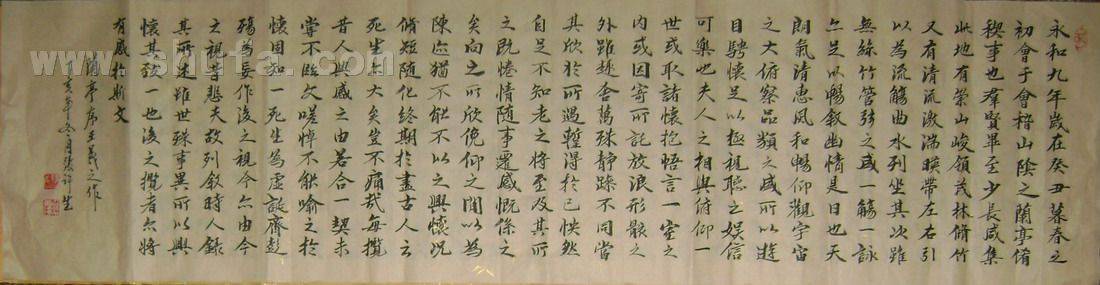 永和九年歲在癸丑暮春之
初會于會稽山陰之蘭亭脩
稧事也羣賢畢至少長咸集
此地有崇山峻領茂林脩竹
又有清流激湍暎帶左右引
以為流觴曲水列坐其次雖
無絲竹管弦之盛一觴一詠
亦足以暢叙幽情是日也天
朗氣清惠風和暢仰觀宇宙
之大俯察品類之盛所以遊
目騁懷足以極視聽之娛信
可樂也夫人之相與俯仰一
世或取諸懷抱悟言一室之
內或因寄所託放浪形骸之
外雖趣舍萬殊靜躁不同當
其欣於所遇蹔得於己怏然
自足不知老之將至及其所
之既惓情隨事遷感慨係之
矣向之所欣俛仰之間以為
陳迹猶不能不以之興懷況
脩短隨化終期於盡古人云
死生亦大矣豈不痛哉每攬
昔人興感之由若合一契未
嘗不臨文嗟悼不能喻之於
懷固知一死生為虛誕齊彭
殤為妄作後之視今亦由今
之視昔悲夫故列叙時人錄
其所述雖世殊事異所以興
懷其致一也後之攬者亦將
有感於斯文
蘭亭序王羲之作
亥年冬月